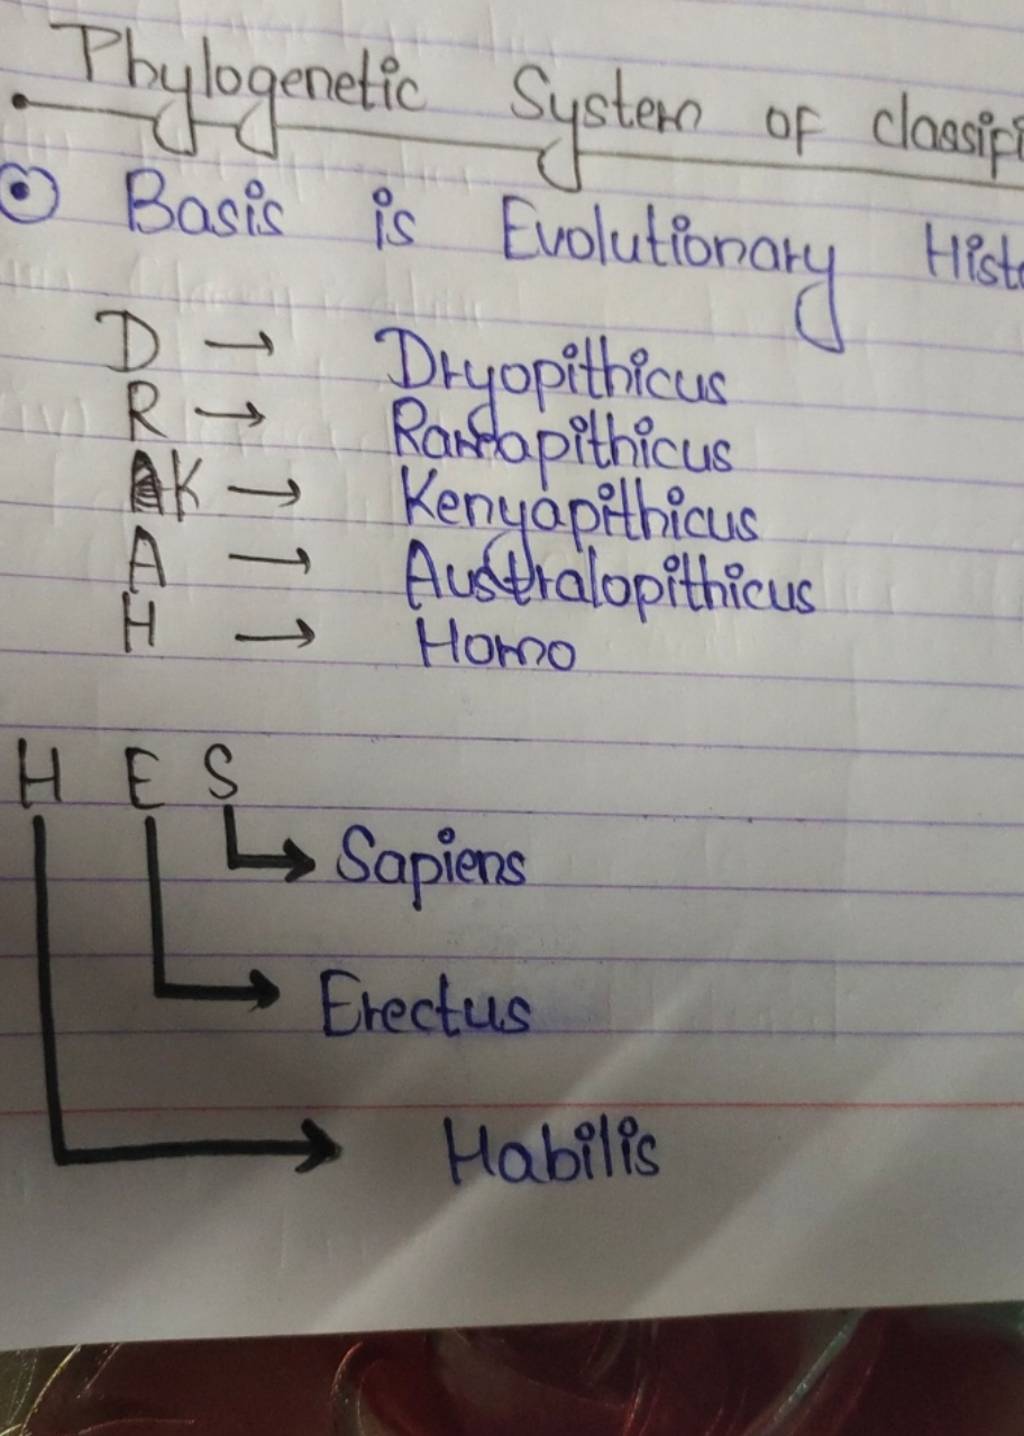 Phylogenetic System of classifi
Basis is Evolutionary Histo
D → Dryopithicus
R → Ramapithicus
K → Kenyapithicus
A → Australopithicus
H → Homo
H E S
Sapiens
Erectus
Habilis